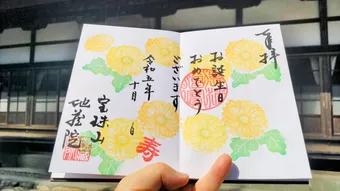 奉拝
お誕生日
おめでとう
ございます
令和五年
十月 日
寿
宝珠山
地蔵院